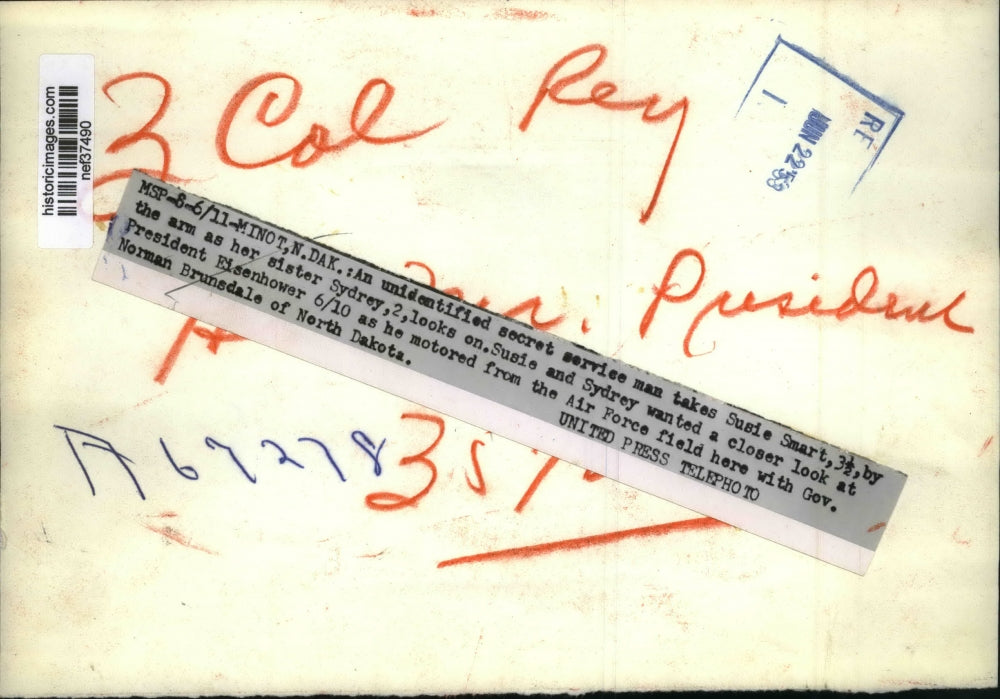 historicimages.com
nef37490
2 Col Rey
RE
JUN 22 53
MSP-8-6/11-MINOT,N.DAK.:An unidentified secret service man takes Susie Smart,3½,by
the arm as her sister Sydrey,2,looks on.Susie and Sydrey wanted a closer look at
President Eisenhower 6/10 as he motored from the Air Force field here with Gov.
Norman Brunsdale of North Dakota.
UNITED PRESS TELEPHOTO
President
A67278